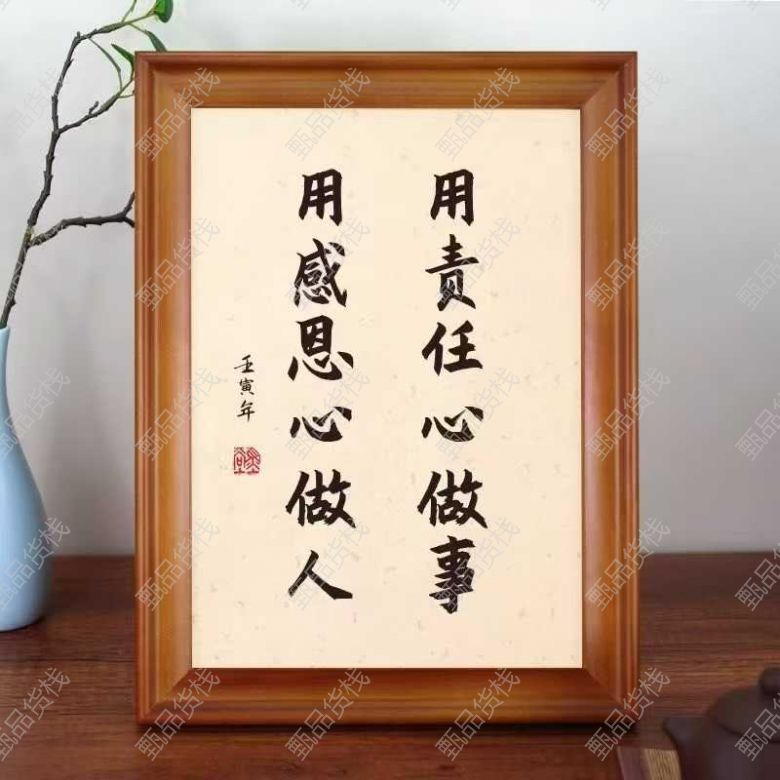 用责任心做事
用感恩心做人
壬寅年
甄品货栈